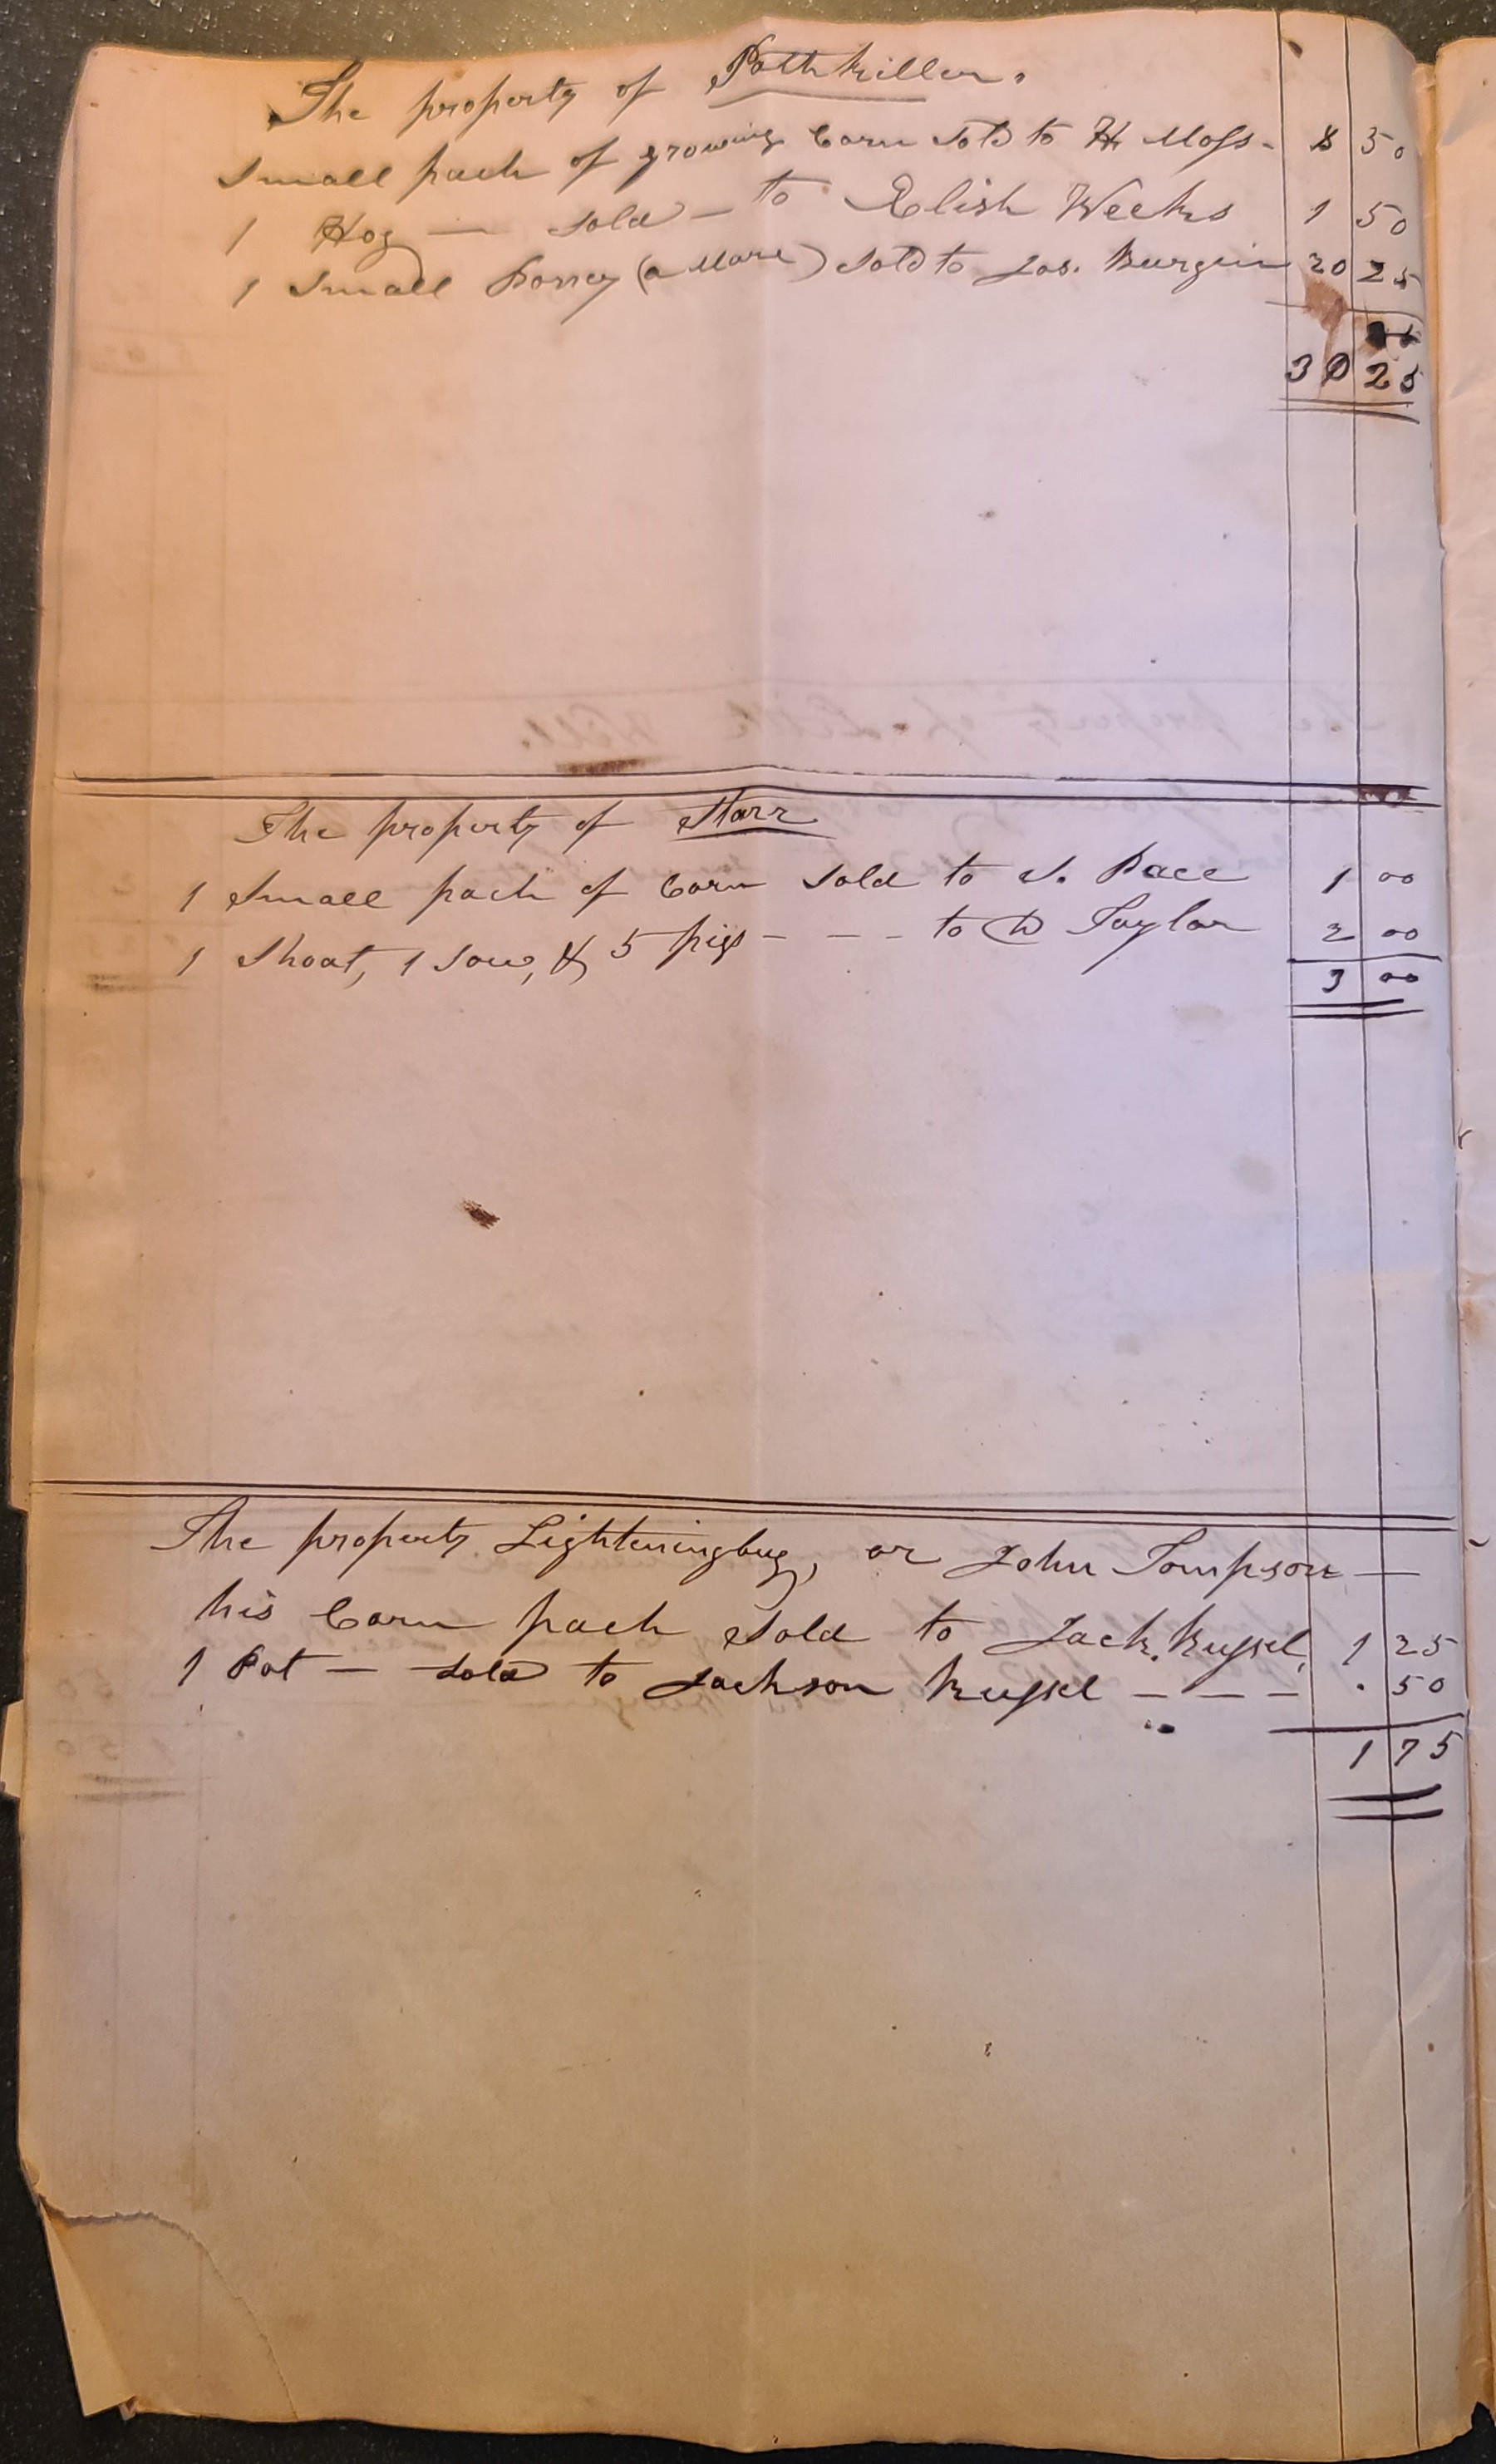 The property of Pathkiller.
Small pach of growing Corn Sold to H Moss - 8 50
1 Hog — Sold — to Elish Weeks 1 50
1 Small Horrey (a Mare) Sold to Jas. Burgin 20 25
30 25
The property of Starr
1 Small pach of Corn Sold to S. Pace 1 00
1 Shoat, 1 Sow, & 5 pigs - - - to D Taylor 2 00
3 00
The property Lighteningbug, or John Tompson —
his Corn pach Sold to Jack. Russel, 1 25
1 Pot — Sold to Jackson Russel - - - . 50
1 75